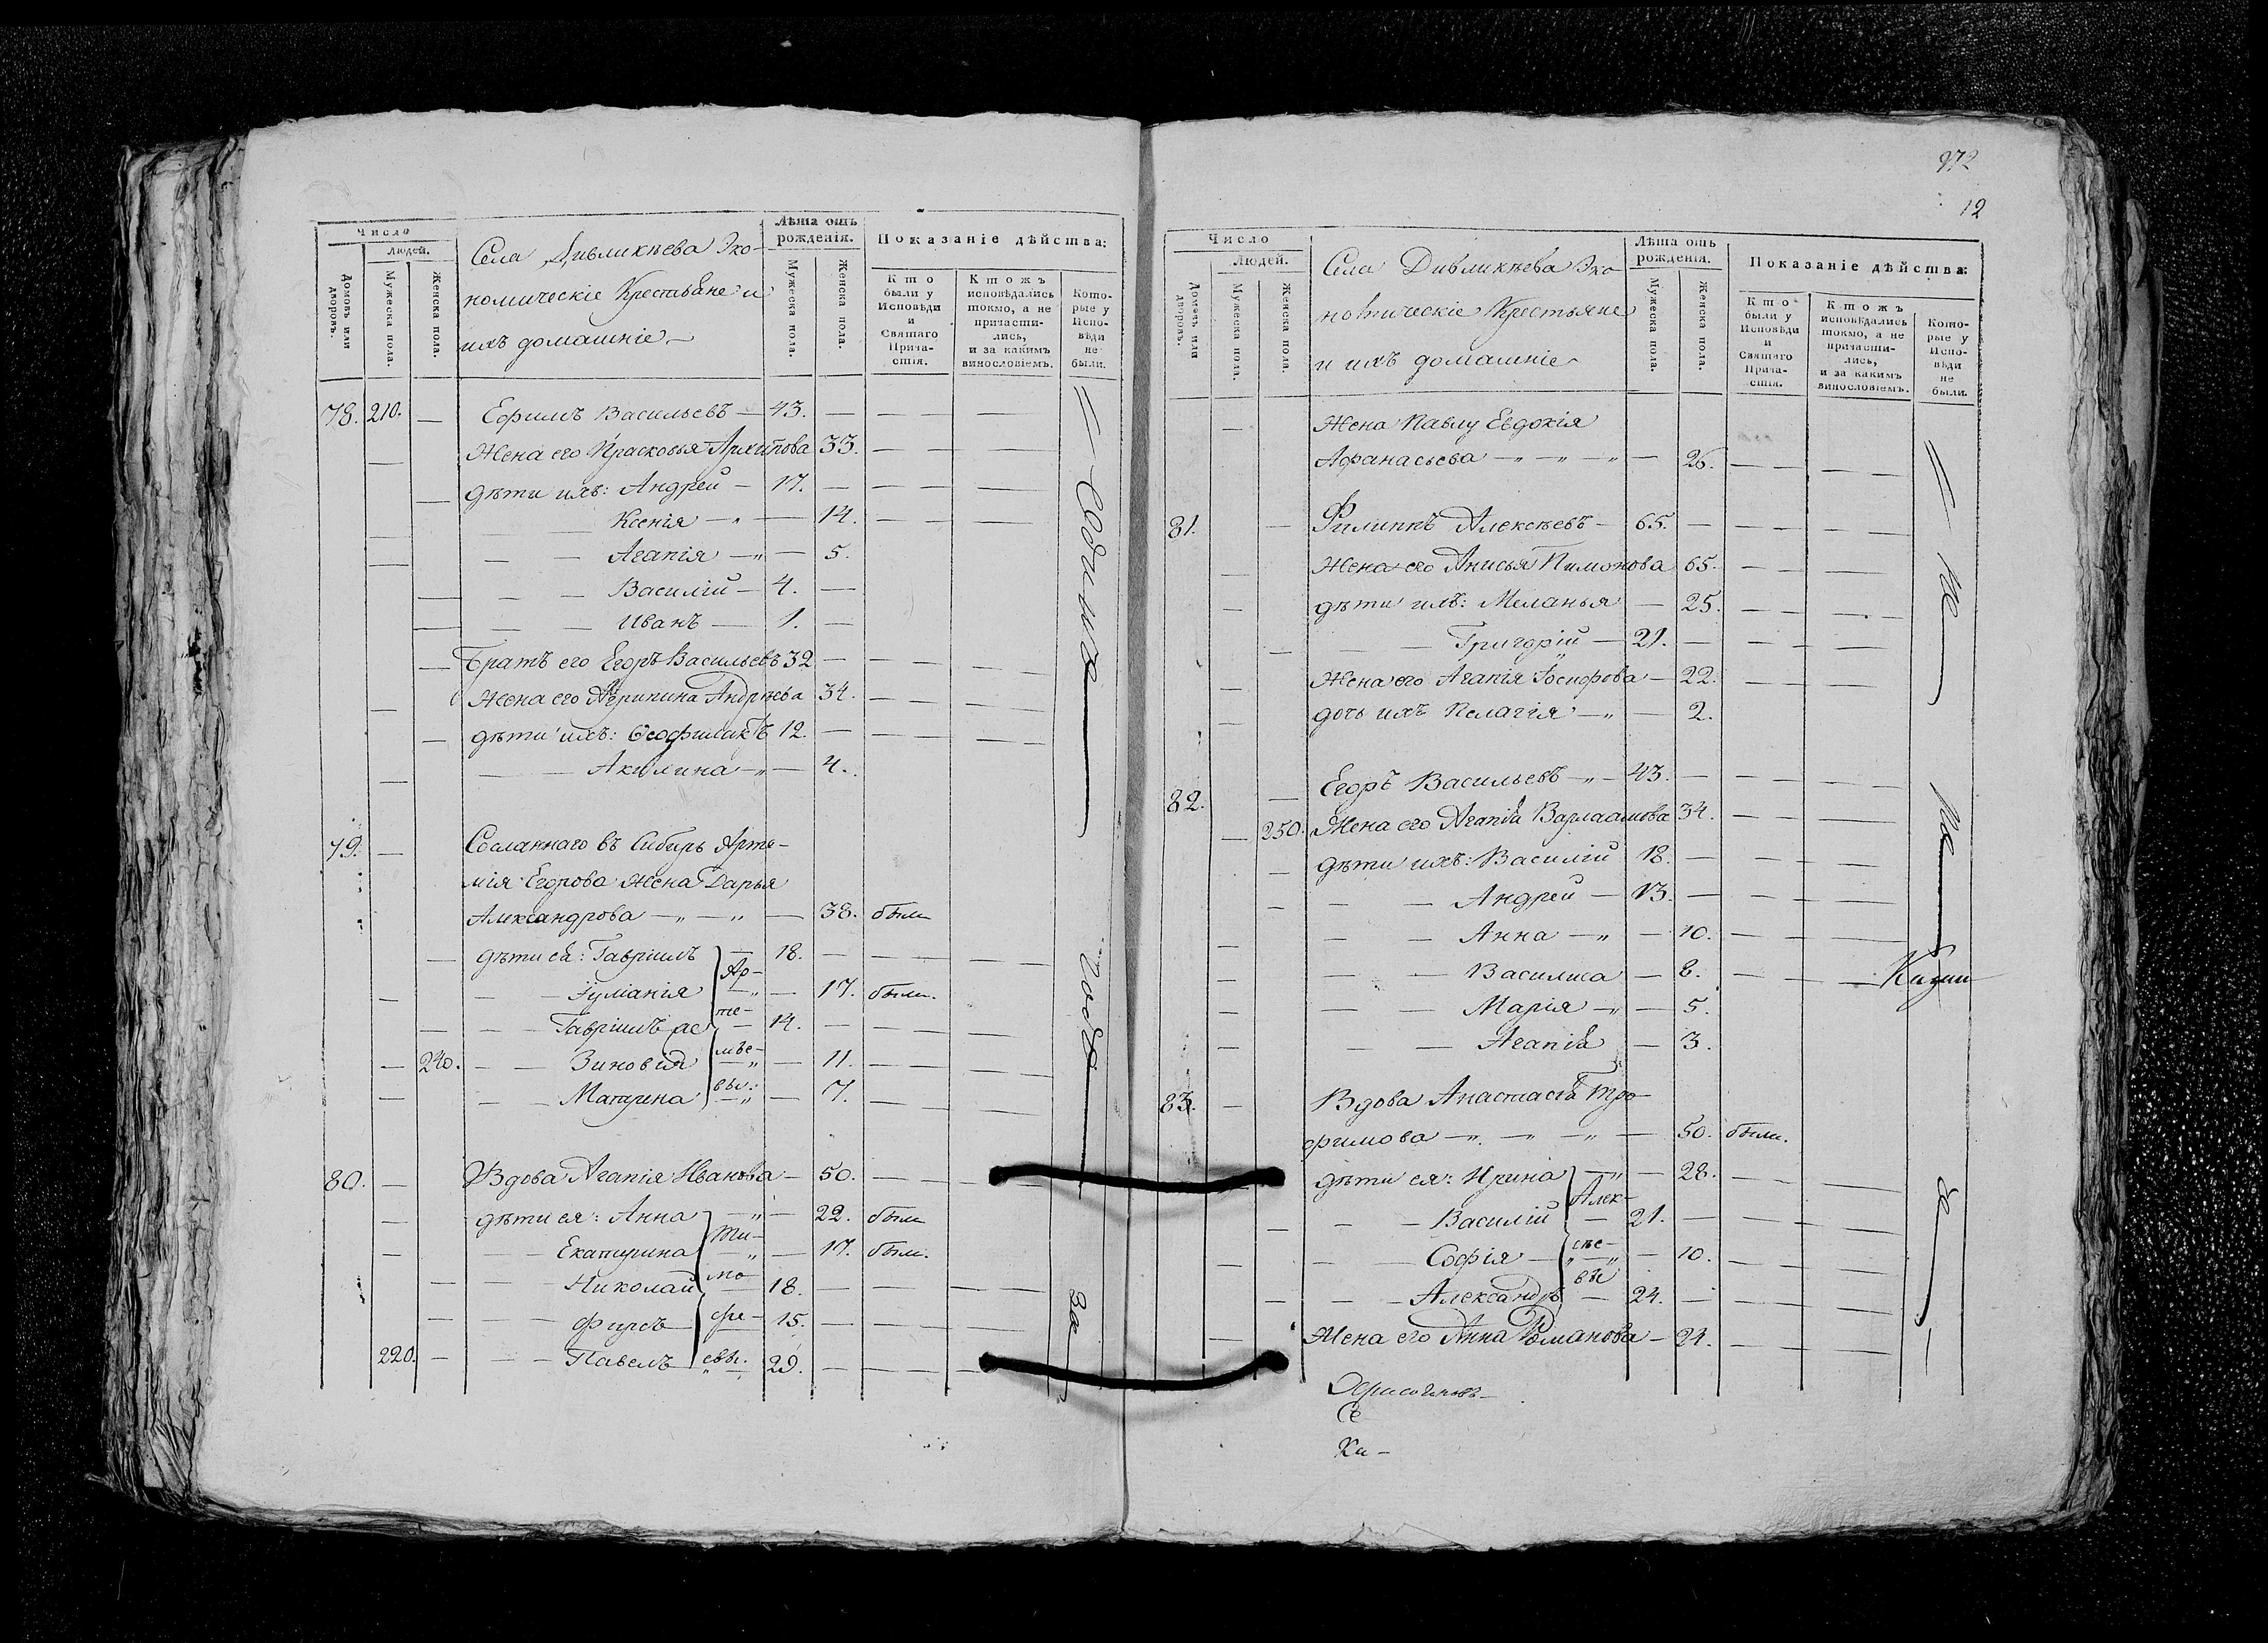 Число
Людей.
Домовъ или дворовъ.
Мужеска пола.
Женска пола.
Села Дивликѣева Эко-
номическіе Крестьяне и
ихъ домашніе
Лѣта отъ рожденія.
Мужеска пола.
Женска пола.
Показаніе дѣйства:
Кто были у Исповѣди и Святаго Причастія.
Ктожъ исповѣдались токмо, а не причастились, и за какимъ винословіемъ.
Которые у Исповѣди не были.
78. 210. — Ефимъ Васильевъ — 43. —
Жена его Прасковья Архипова 33.
дѣти ихъ: Андрей — 17. —
Ксенія — 14.
Агапія — 5.
Василій — 4. —
Иванъ — 1. —
Братъ его Егоръ Васильевъ 32 —
Жена его Агрипина Андрѣева 34.
дѣти ихъ: Ѳеофилактъ 12. —
Акилина — 4.
79. — Сосланнаго въ Сибирь Арте-
мія Егорова жена Дарья
Александрова — 38. были
дѣти ея: Гавріилъ — 18. —
Іуліанія — 17. были.
Гавріилъ же — 14. —
240. Зиновія — 11.
Матрена — 7.
Ар-
те-
мье-
вы.
80. — Вдова Агапія Иванова — 50.
дѣти ея: Анна — 22. были
Екатерина — 17. были.
Николай — 18. —
Фирсъ — 15. —
220. — Павелъ 29. —
Ти-
мо-
фе-
евы.
За
972
12
Число
Людей.
Домовъ или дворовъ.
Мужеска пола.
Женска пола.
Села Дивликѣева Эко
номическіе Крестьяне
и ихъ домашніе
Лѣта отъ рожденія.
Мужеска пола.
Женска пола.
Показаніе дѣйства:
Кто были у Исповѣди и Святаго Причастія.
Ктожъ исповѣдались токмо, а не причастились, и за какимъ винословіемъ.
Которые у Исповѣди не были.
Жена Павлу Евдокія
Афанасьева — 26.
81. — Филиппъ Алексѣевъ — 65. —
Жена его Анисья Пимонова 65.
дѣти ихъ: Меланья — 25.
Григорій — 21. —
Жена его Агапія Іосифова — 22.
дочь ихъ Пелагія — 2.
82. — Егоръ Васильевъ — 43. —
250. Жена его Агапія Варлаамова 34.
дѣти ихъ: Василій 18. —
Андрей — 13. —
Анна — 10.
Василиса — 8.
Марія — 5.
Агапія — 3.
83. — Вдова Анастасія Тро-
фимова — 50. были.
дѣти ея: Ирина — 28.
Василій — 21. —
Софія — 10.
Александръ — 24. —
Алек-
сѣе-
вы
Жена его Анна Романова — 24.
Ки-